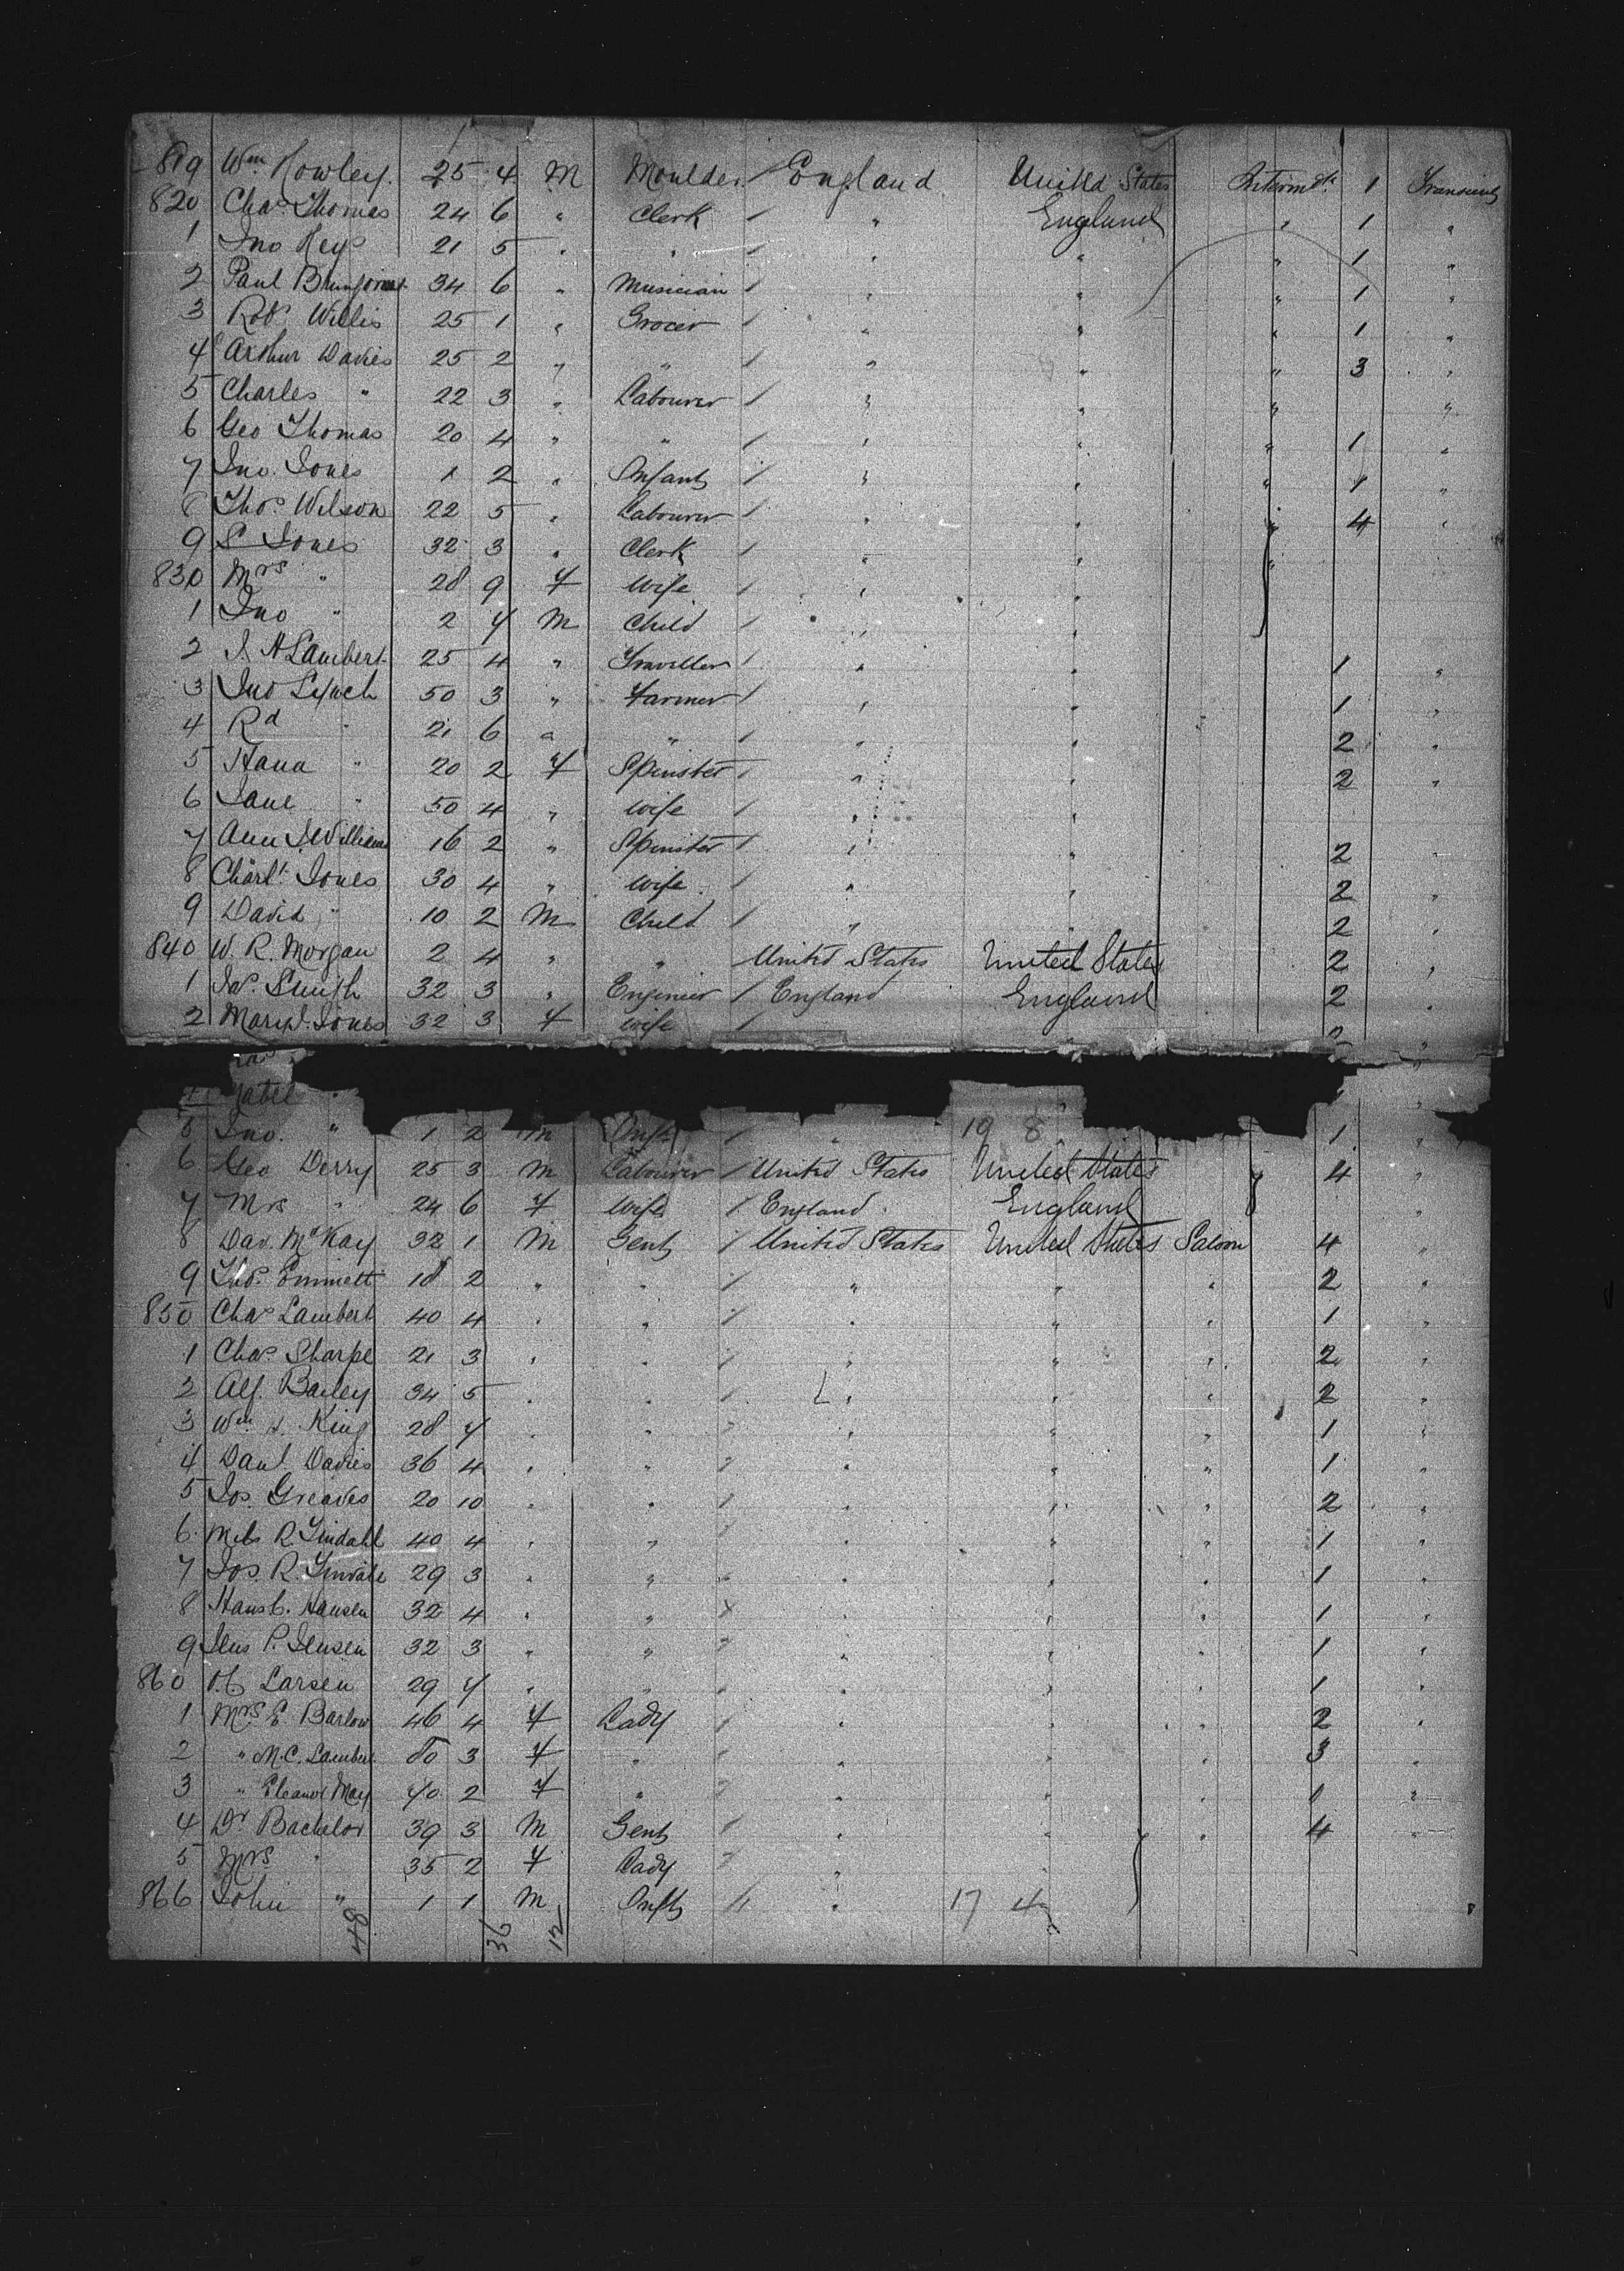 819 Wm Rowley 25 4 M Moulder / England United States Intermdte 1 Transient
820 Chas. Thomas 24 6 " Clerk / " England " 1 "
1 Jno Keys 21 5 " " / " " " 1 "
2 Paul 34 6 " Musician / " " " 1 "
3 Robt. Willis 25 1 " Grocer / " " " 1 "
4 Arthur Davies 25 2 " " / " " " 3 "
5 Charles " 22 3 " Labourer / " " " "
6 Geo Thomas 20 4 " " / " " " 1 "
7 Jno. Jones 1 2 " Infant / " " " 1 "
8 Thos. Wilson 22 5 " Labourer / " " " 4 "
9 S Jones 32 3 " Clerk / " " "
830 Mrs " 28 9 F Wife / " "
1 Jno " 2 7 M Child / " "
2 J. H Lambert 25 4 " Traveller / " " 1 "
3 Jno Lynch 50 3 " Farmer / " " 1 "
4 Rd " 21 6 " " / " " 2 "
5 Hana " 20 2 F Spinster / " " 2 "
6 Jane " 50 4 " Wife / "
7 Ann J. Williams 16 2 " Spinster / " " 2 "
8 Charlt. Jones 30 4 " Wife / " " 2 "
9 David " 10 2 M Child / " 2 "
840 W. R. Morgan 2 4 " " United States United States 2 "
1 Jas. Smith 32 3 " Engineer / England England 2 "
2 Mary J. Jones 32 3 F Wife /
4 Mabel "
5 Jno. " 1 2 M Inft / " 19 8 1 "
6 Geo Derry 25 3 M Labourer / United States United States 4 "
7 Mrs " 24 6 F Wife / England England "
8 Dav. McKay 32 1 M Gent / United States United States Saloon 4 "
9 Thos. Emmett 18 2 " " / " " " 2 "
850 Chas Lambert 40 4 " " / " " " 1 "
1 Chas. Sharpe 21 3 " " / " " " 2 "
2 Alf. Bailey 34 5 " " / " " " 2 "
3 Wm. J. King 28 7 " " / " " " 1 "
4 Danl. Davies 36 4 " " / " " " 1 "
5 Jos. Greaves 20 10 " " / " " " 2 "
6 R. Lindahl 40 4 " " / " " " 1 "
7 Jos. R. 29 3 " " / " " " 1 "
8 Hans C. Hansen 32 4 " " / " " " 1 "
9 Jens P. Jensen 32 3 " " / " " " 1 "
860 Larsen 29 7 " " / " " " 1 "
1 Mrs E Barlow 46 4 F Lady / " " " 2 "
2 " M. C. Lambert 50 3 F " / " " " 3 "
3 " Eleanor May 40 2 F " / " " " 1 "
4 Dr Bachelor 39 3 M Gent / " " " 4 "
5 Mrs " 35 2 F Lady / " "
866 John " 1 1 M Inft / " 17 4
48 36 12